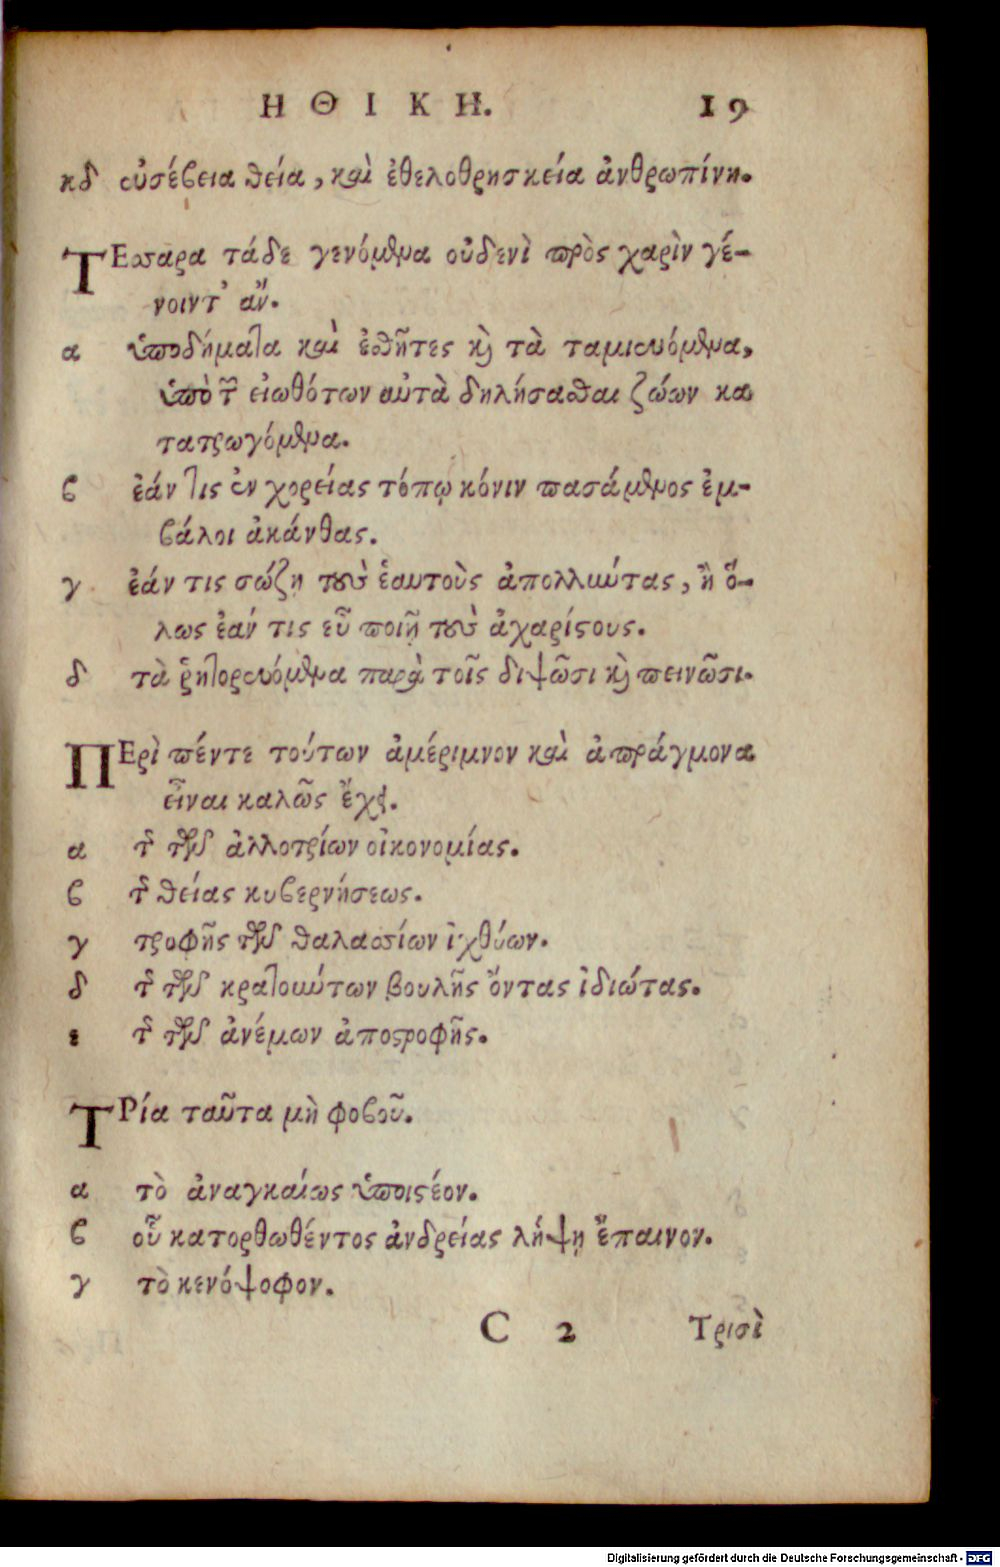 ΗΘΙΚΗ. 19
κδ εὐσέβεια θεία, καὶ ἐθελοθρησκεία ἀνθρωπίνη.
ΤΕσσαρα τάδε γενόμενα οὐδενὶ πρὸς χαρὶν γέ-
νοιντ᾽ ἄν.
α ὑποδήματα καὶ ἐσθῆτες καὶ τὰ ταμιευόμενα,
ὑπὸ τῶν εἰωθότων αὐτὰ δηλήσασθαι ζώων κα
τατρωγόμενα.
β ἐάν τις ἐν χορείας τόπῳ κόνιν πασάμενος ἐμ-
βάλοι ἀκάνθας.
γ ἐάν τις σώζῃ τοὺς ἑαυτοὺς ἀπολλύντας, ἢ ὅ-
λως ἐάν τις εὖ ποιῇ τοὺς ἀχαρίστους.
δ τὰ ῥητορευόμενα παρὰ τοῖς διψῶσι καὶ πεινῶσι.
ΠΕρὶ πέντε τούτων ἀμέριμνον καὶ ἀπράγμονα
εἶναι καλῶς ἔχει.
α τῆς τῶν ἀλλοτρίων οἰκονομίας.
β τῆς θείας κυβερνήσεως.
γ τροφῆς τῶν θαλασσίων ἰχθύων.
δ τῆς τῶν κρατούντων βουλῆς ὄντας ἰδιώτας.
ε τῆς τῶν ἀνέμων ἀποστροφῆς.
ΤΡία ταῦτα μὴ φοβοῦ.
α τὸ ἀναγκαίως ὑποιστέον.
β οὗ κατορθωθέντος ἀνδρείας λήψῃ ἔπαινον.
γ τὸ κενόψοφον.
C 2 Τρισὶ
Digitalisierung gefördert durch die Deutsche Forschungsgemeinschaft - DFG